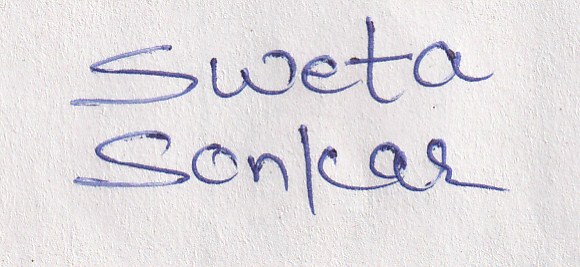 Sweta
Sonkar